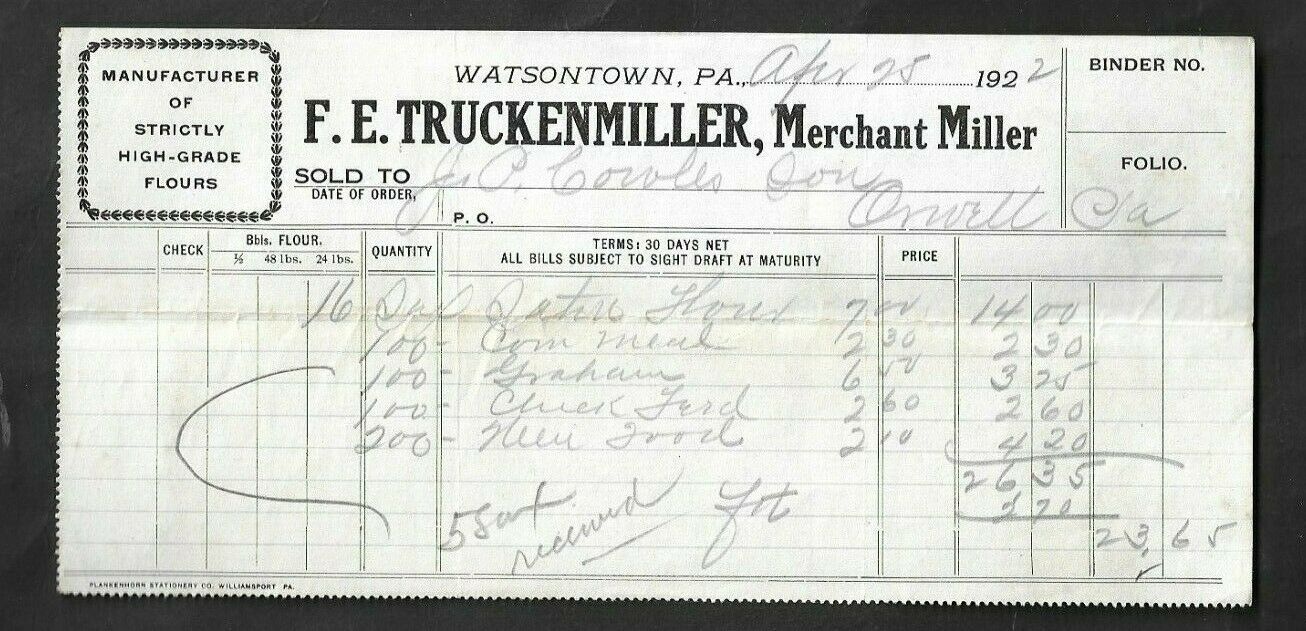 MANUFACTURER
OF
STRICTLY
HIGH-GRADE
FLOURS
WATSONTOWN, PA., Apr 25 1922
F. E. TRUCKENMILLER, Merchant Miller
SOLD TO P. Cowles Son
DATE OF ORDER,
P. O. Orwell Pa
BINDER NO.
FOLIO.
CHECK
Bbls. FLOUR.
½ 48 lbs. 24 lbs.
QUANTITY
TERMS: 30 DAYS NET
ALL BILLS SUBJECT TO SIGHT DRAFT AT MATURITY
PRICE
16 Flour 7 00 14 00
100 - Corn Meal 2 30 2 30
100 - Graham 6 50 3 25
100 - Chick Feed 2 60 2 60
200 - 2 10 4 20
26 35
5 received Frt 2 70
23.65
PLANKENHORN STATIONERY CO. WILLIAMSPORT PA.